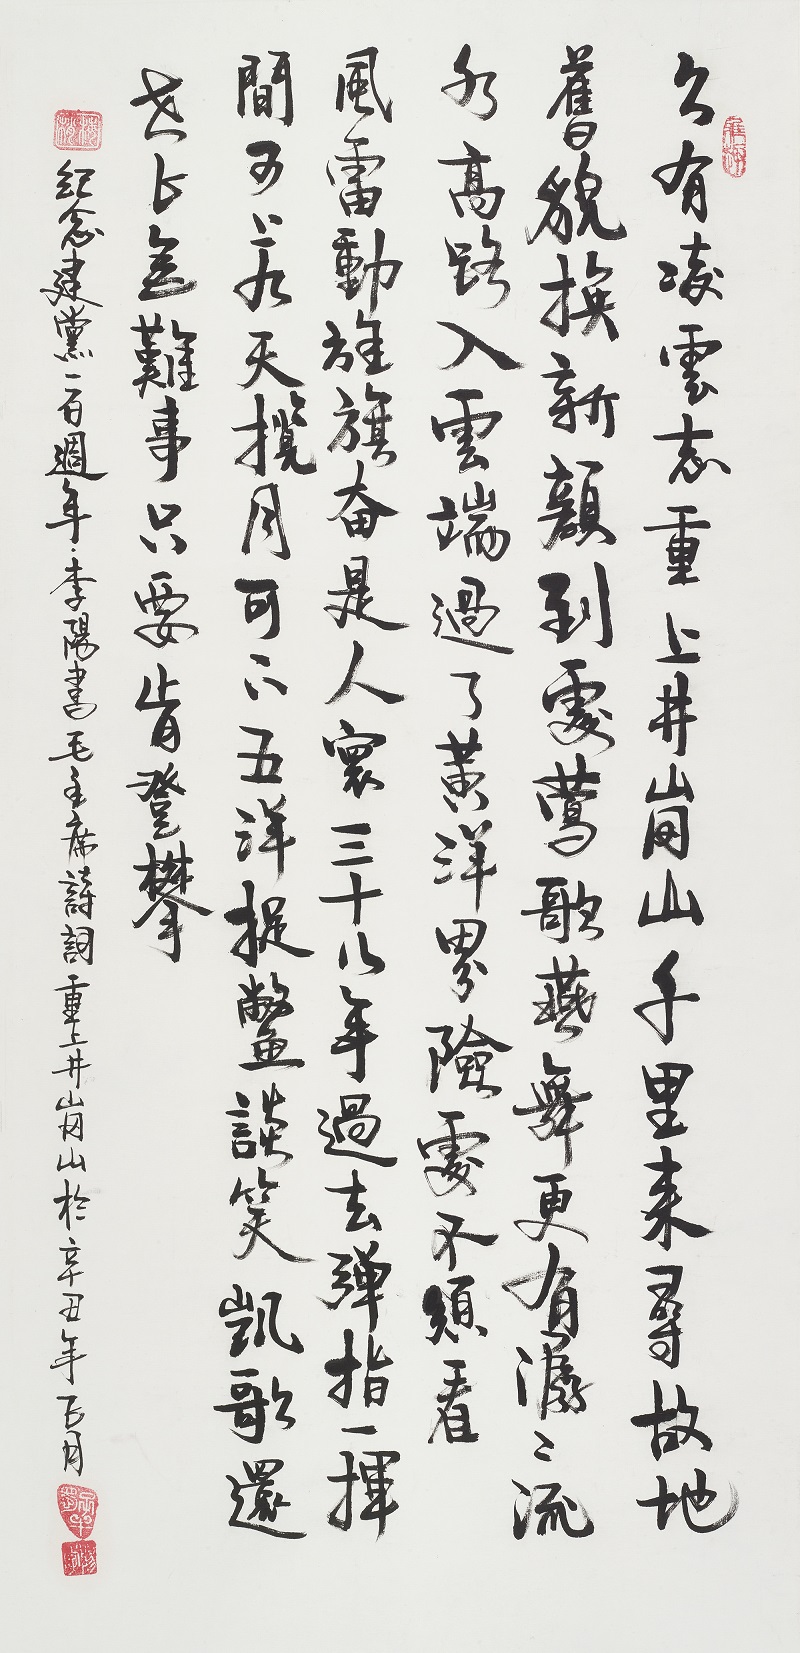 久有凌雲志重上井崗山千里来尋故地
舊貌換新顏到處鶯歌燕舞更有潺〻流
水高路入雲端過了黄洋界險處不須看
風雷動旌旗奋是人寰三十八年過去彈指一揮
間可上九天攬月可下五洋捉鱉談笑凱歌還
世上無難事只要肯登攀
紀念建黨一百週年·李陽書毛主席詩詞重上井崗山於辛丑年正月